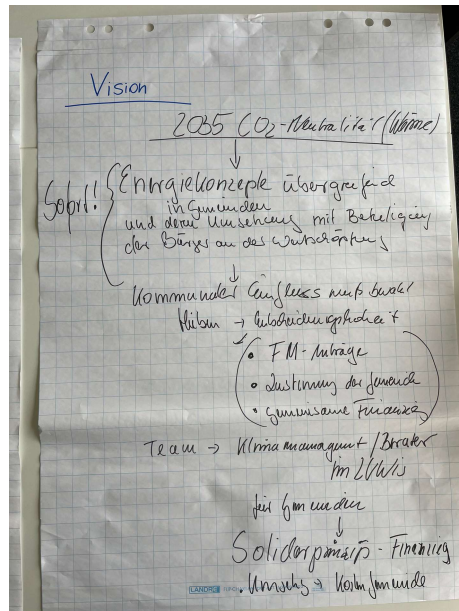 Vision
2035 CO2-Neutralität (Wärme)
↓
Sofort! Energiekonzepte übergreifend
in Gemeinden
und deren Umsetzung mit Beteiligung
der Bürger an der Wertschöpfung
↓
Kommunaler Einfluss muß bewahrt
bleiben → Entscheidungshoheit
• FM-Anträge
• Zustimmung der Gemeinde
• Gemeinsame Finanzierung
Team → Klimamanagement / Berater
im
für Gemeinden
↓
Solidarprinzip - Finanzierung
• Umsetzg → Gemeinde
LANDRÉ